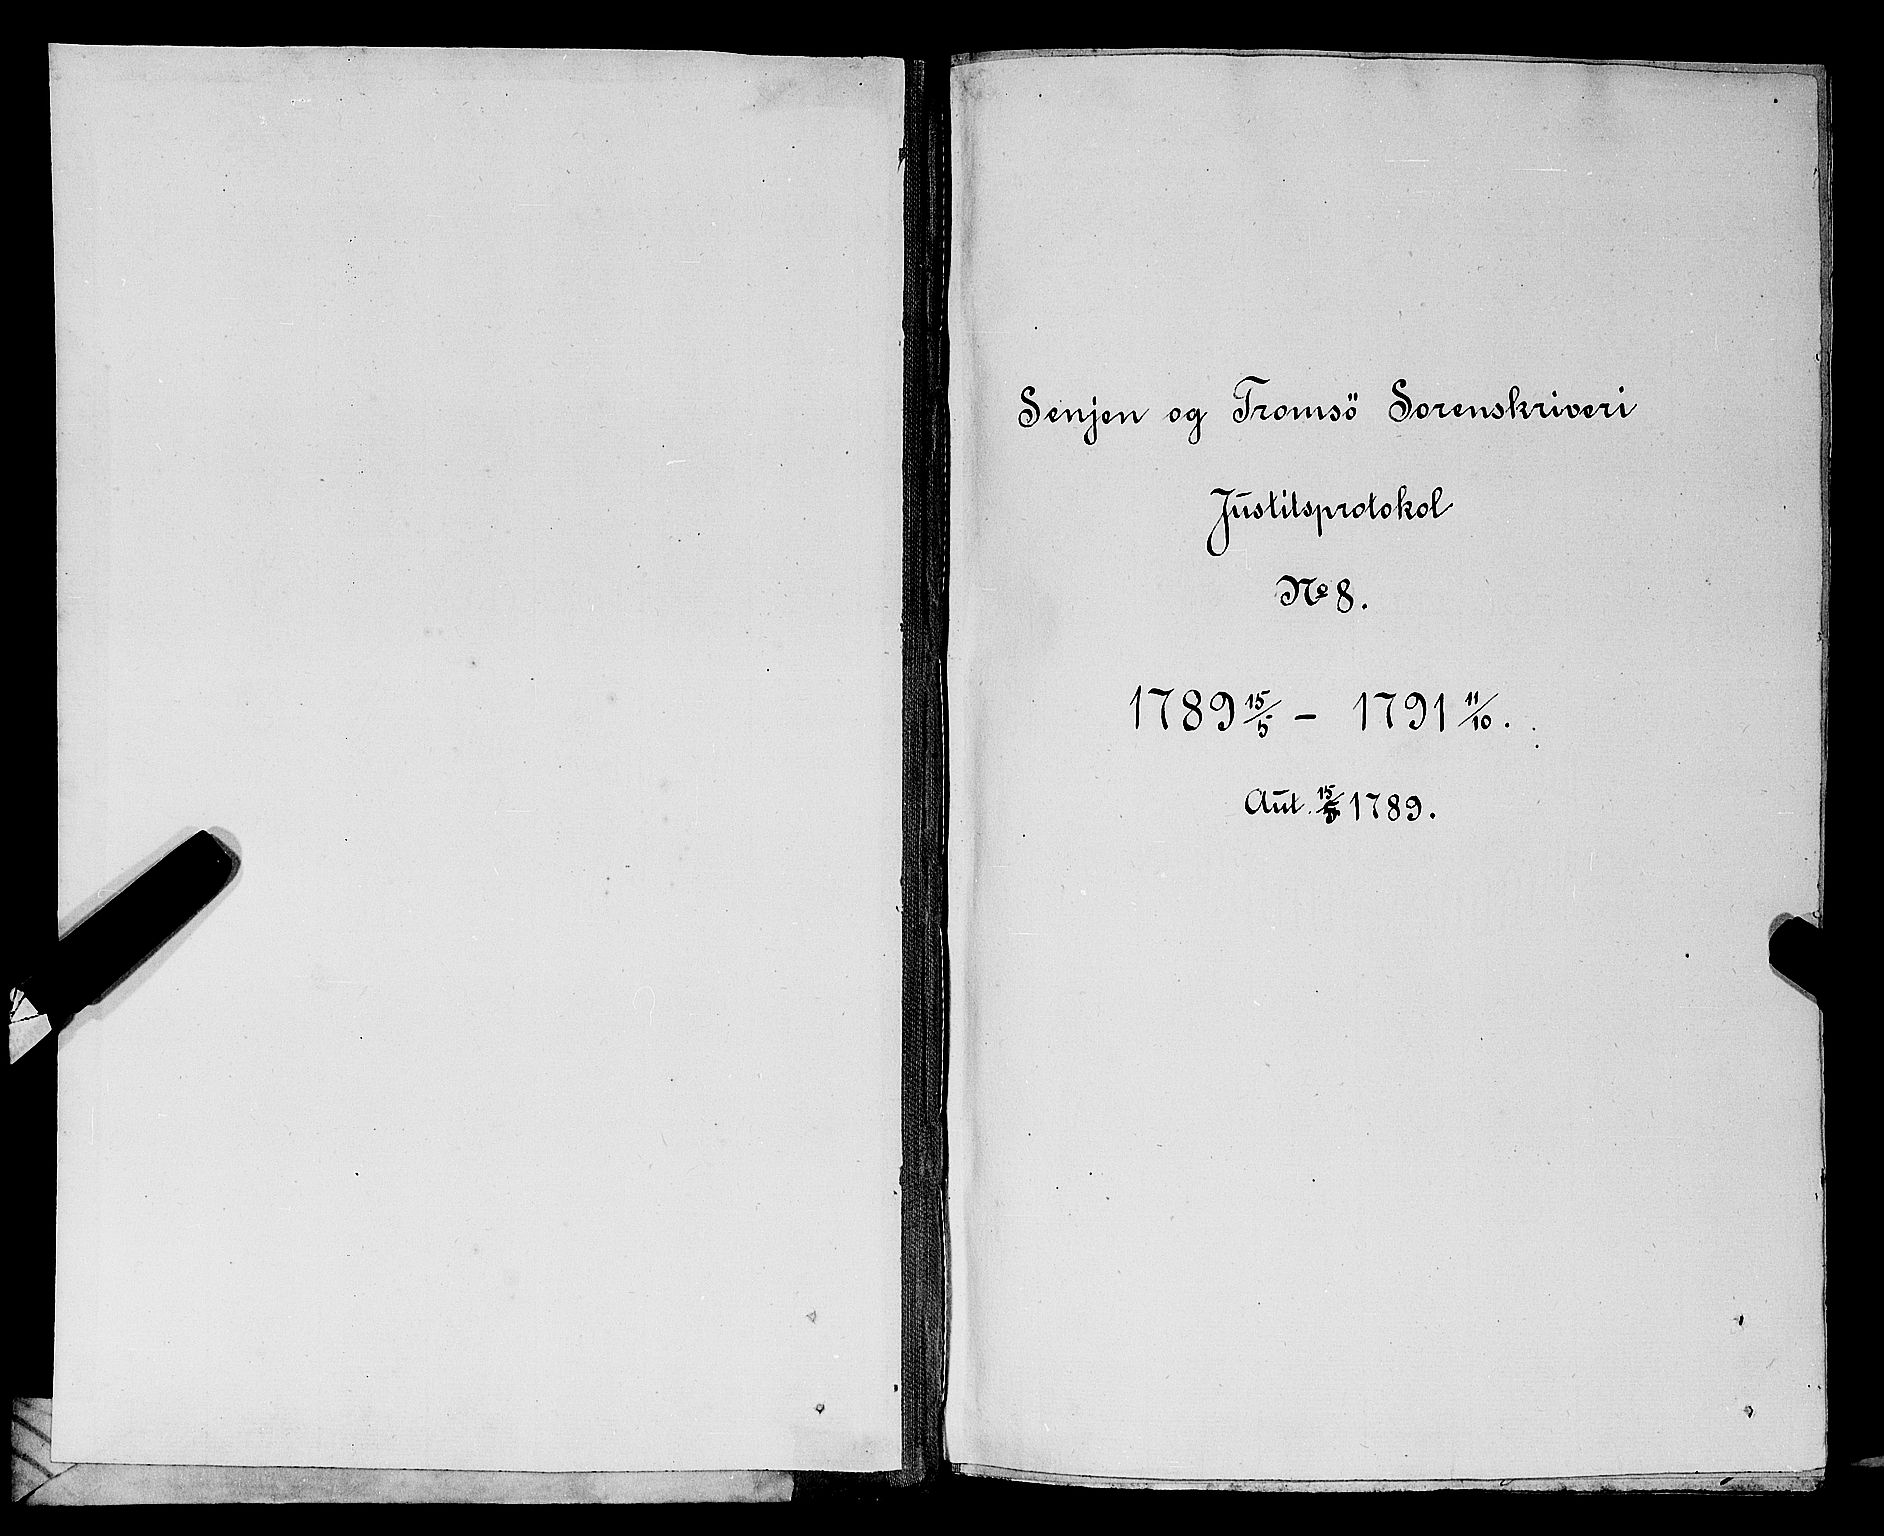 Senjen og Tromsö Sorenskriveri
Justitsprotokol
No 8.
1789 15/5 – 1791 11/10.
Aut. 15/5 1789.